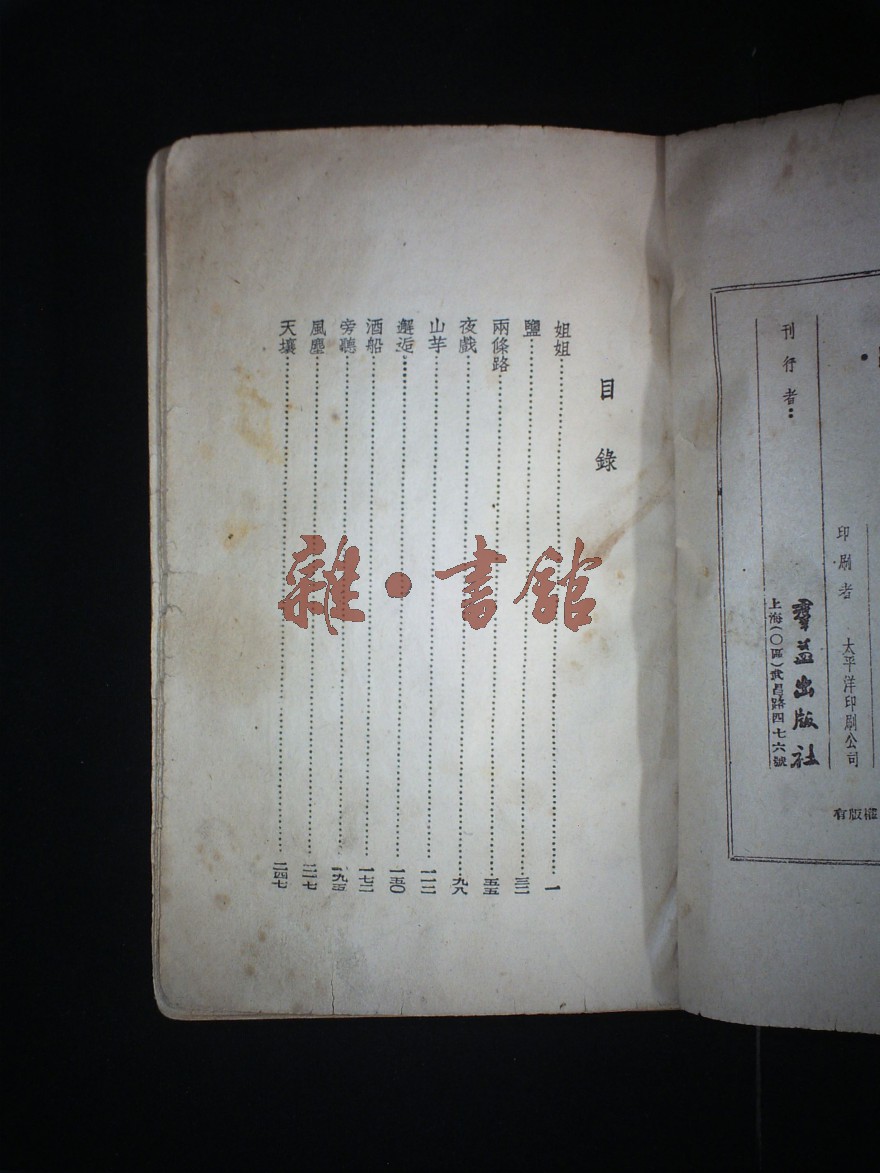 印刷者 太平洋印刷公司
刊行者：
羣益出版社
上海（〇區）武昌路四七六號
有版權
目錄
姐姐……一
鹽……三二
兩條路……五五
夜戲……九八
山芋……一一二
邂逅……一五〇
酒船……一七二
旁聽……一九五
風塵……二一七
天壤……二四七
雜·書館